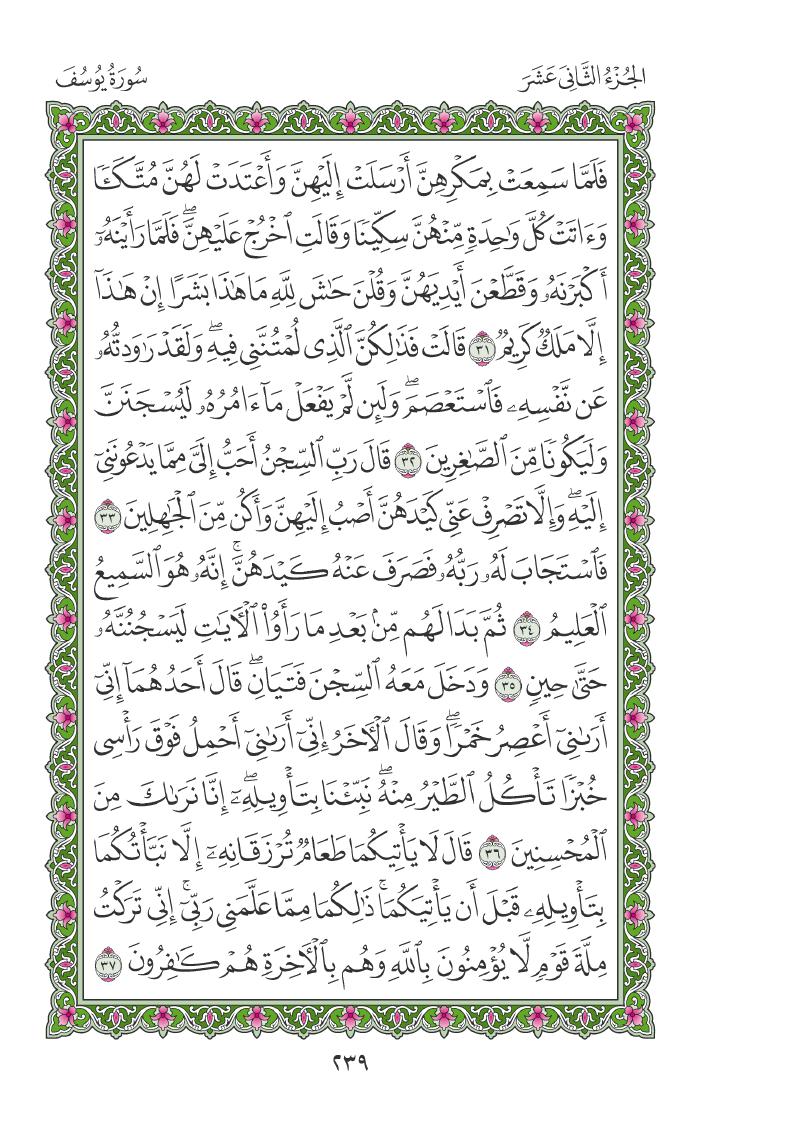 الجُزْءُ الثَّانِى عَشَرَ
سُورَةُ يُوسُفَ
فَلَمَّا سَمِعَتْ بِمَكْرِهِنَّ أَرْسَلَتْ إِلَيْهِنَّ وَأَعْتَدَتْ لَهُنَّ مُتَّكَـًٔا
وَءَاتَتْ كُلَّ وَٰحِدَةٍ مِّنْهُنَّ سِكِّينًا وَقَالَتِ ٱخْرُجْ عَلَيْهِنَّ ۖ فَلَمَّا رَأَيْنَهُۥٓ
أَكْبَرْنَهُۥ وَقَطَّعْنَ أَيْدِيَهُنَّ وَقُلْنَ حَٰشَ لِلَّهِ مَا هَٰذَا بَشَرًا إِنْ هَٰذَآ
إِلَّا مَلَكٌ كَرِيمٌ ٣١ قَالَتْ فَذَٰلِكُنَّ ٱلَّذِى لُمْتُنَّنِى فِيهِ ۖ وَلَقَدْ رَٰوَدتُّهُۥ
عَن نَّفْسِهِۦ فَٱسْتَعْصَمَ ۖ وَلَئِن لَّمْ يَفْعَلْ مَآ ءَامُرُهُۥ لَيُسْجَنَنَّ
وَلَيَكُونًا مِّنَ ٱلصَّٰغِرِينَ ٣٢ قَالَ رَبِّ ٱلسِّجْنُ أَحَبُّ إِلَىَّ مِمَّا يَدْعُونَنِىٓ
إِلَيْهِ ۖ وَإِلَّا تَصْرِفْ عَنِّى كَيْدَهُنَّ أَصْبُ إِلَيْهِنَّ وَأَكُن مِّنَ ٱلْجَٰهِلِينَ ٣٣
فَٱسْتَجَابَ لَهُۥ رَبُّهُۥ فَصَرَفَ عَنْهُ كَيْدَهُنَّ ۚ إِنَّهُۥ هُوَ ٱلسَّمِيعُ
ٱلْعَلِيمُ ٣٤ ثُمَّ بَدَا لَهُم مِّنۢ بَعْدِ مَا رَأَوُا۟ ٱلْءَايَٰتِ لَيَسْجُنُنَّهُۥ
حَتَّىٰ حِينٍ ٣٥ وَدَخَلَ مَعَهُ ٱلسِّجْنَ فَتَيَانِ ۖ قَالَ أَحَدُهُمَآ إِنِّىٓ
أَرَىٰنِىٓ أَعْصِرُ خَمْرًا ۖ وَقَالَ ٱلْءَاخَرُ إِنِّىٓ أَرَىٰنِىٓ أَحْمِلُ فَوْقَ رَأْسِى
خُبْزًا تَأْكُلُ ٱلطَّيْرُ مِنْهُ ۖ نَبِّئْنَا بِتَأْوِيلِهِۦٓ ۖ إِنَّا نَرَىٰكَ مِنَ
ٱلْمُحْسِنِينَ ٣٦ قَالَ لَا يَأْتِيكُمَا طَعَامٌ تُرْزَقَانِهِۦٓ إِلَّا نَبَّأْتُكُمَا
بِتَأْوِيلِهِۦ قَبْلَ أَن يَأْتِيَكُمَا ۚ ذَٰلِكُمَا مِمَّا عَلَّمَنِى رَبِّىٓ ۚ إِنِّى تَرَكْتُ
مِلَّةَ قَوْمٍ لَّا يُؤْمِنُونَ بِٱللَّهِ وَهُم بِٱلْءَاخِرَةِ هُمْ كَٰفِرُونَ ٣٧
٢٣٩